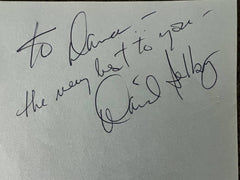 to Dana --
the very best to you -
David